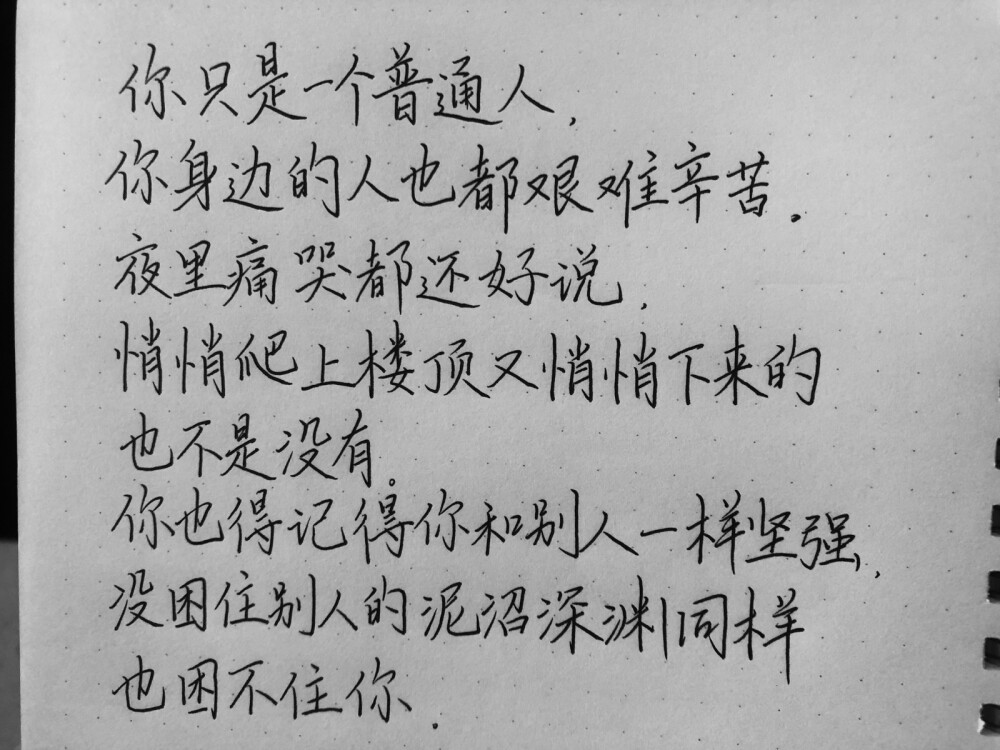 你只是一个普通人,
你身边的人也都艰难辛苦.
夜里痛哭都还好说,
悄悄爬上楼顶又悄悄下来的
也不是没有。
你也得记得你和别人一样坚强,
没困住别人的泥沼深渊同样
也困不住你.